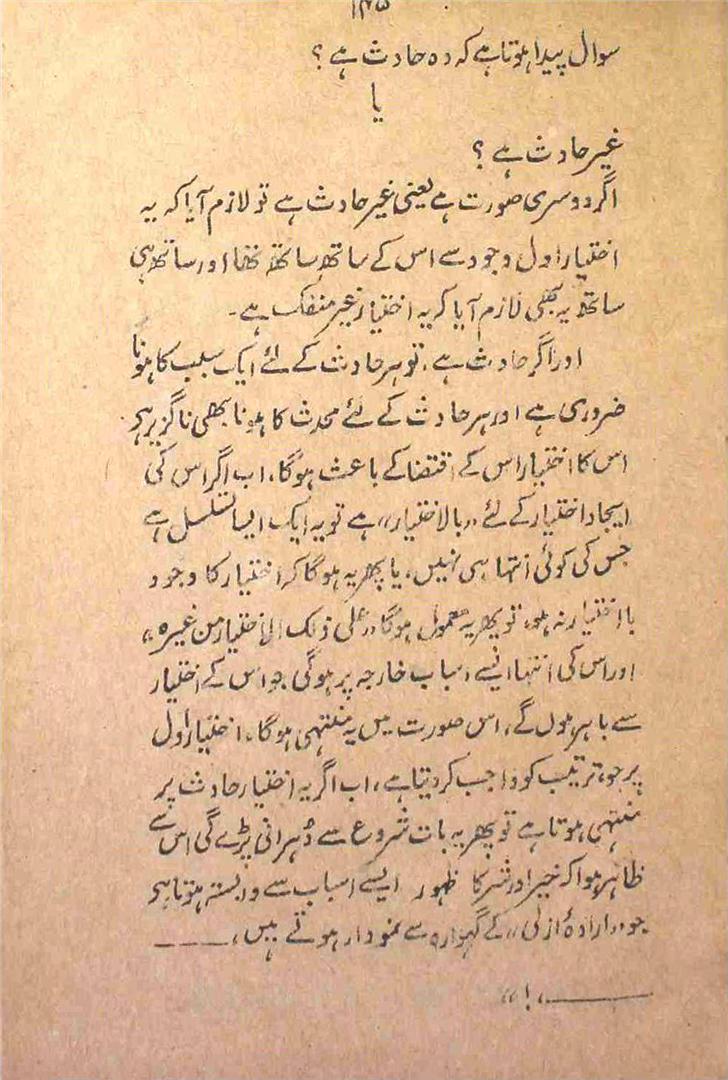 ۱۴۵
سوال پیدا ہوتا ہے کہ وہ حادث ہے ؟
یا
غیر حادث ہے ؟
اگر دوسری صورت ہے یعنی غیر حادث ہے تو لازم آیا کہ یہ
اختیار اول وجود سے اس کے ساتھ ساتھ تھا اور ساتھ ہی
ساتھ یہ بھی لازم آیا کہ یہ اختیار غیر منفک ہے۔
اور اگر حادث ہے، تو ہر حادث کے لئے ایک سبب کا ہونا
ضروری ہے اور ہر حادث کے لئے محدث کا ہونا بھی ناگزیر ہے
اس کا اختیار اس کے اقتضا کے باعث ہوگا، اب اگر اس کی
ایجاد اختیار کے لئے "بالاختیار" ہے تو یہ ایک ایسا تسلسل ہے
جس کی کوئی انتہا ہی نہیں، یا پھر یہ ہوگا کہ اختیار کا وجود
بااختیار نہ ہو، تو پھر یہ محمول ہوگا "علی ذلک الاختیار من غیرہ"
اور اس کی انتہا ایسے اسباب خارجہ پر ہوگی جو اس کے اختیار
سے باہر ہوں گے، اس صورت میں یہ منتہی ہوگا، اختیار اول
پر جو، ترتیب کو واجب کر دیتا ہے، اب اگر یہ اختیار حادث پر
منتہی ہوتا ہے تو پھر یہ بات شروع سے دُہرانی پڑے گی اس سے
ظاہر ہوا کہ خیر اور شر کا ظہور ایسے اسباب سے وابستہ ہوتا ہے
جو "ارادۂ ازلی" کے گہوارہ سے نمودار ہوتے ہیں، ـــــــ
ـــــــــ، !"